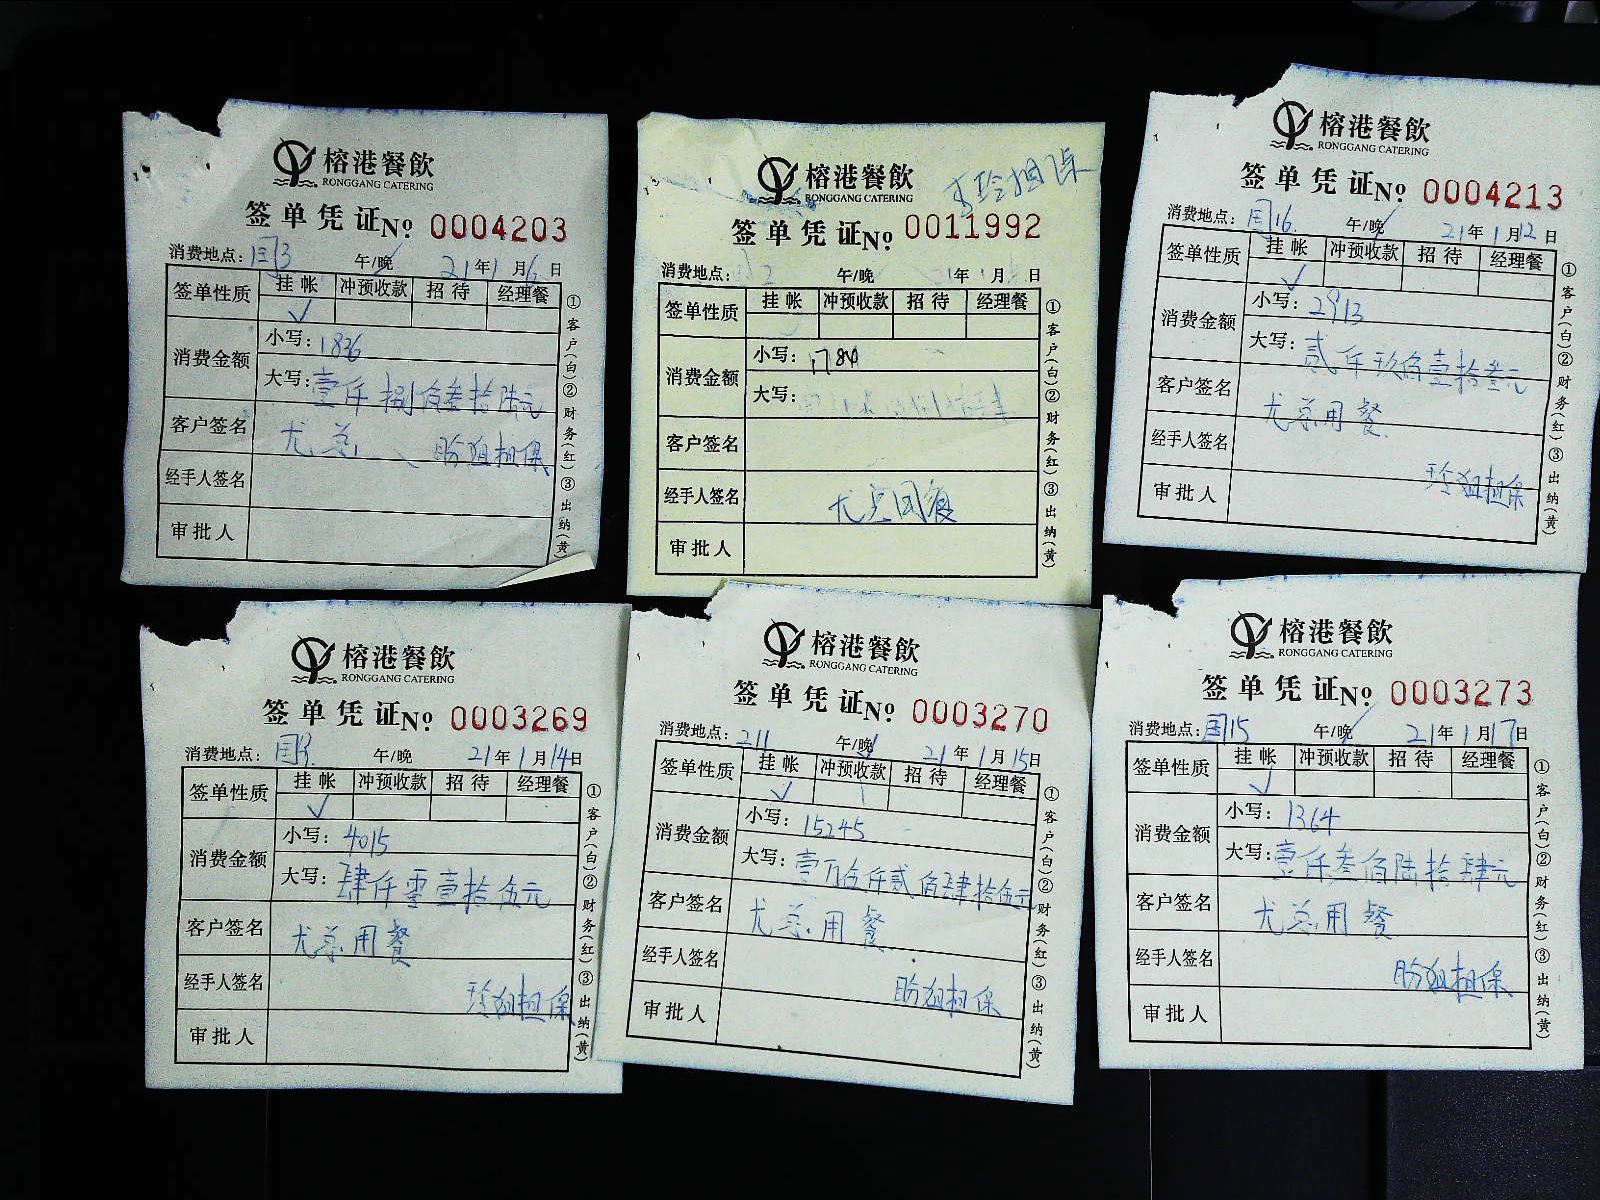 榕港餐飲
RONGGANG CATERING
签单凭证 № 0004203
消费地点：国3 午/晚 21年1月6日
签单性质 挂帐 冲预收款 招待 经理餐
✓
消费金额 小写：1836
大写：壹仟捌佰叁拾陆元
客户签名 尤总 盼姐担保
经手人签名
审批人
①客户(白)②财务(红)③出纳(黄)
榕港餐飲
RONGGANG CATERING
担保
签单凭证 № 0011992
消费地点： 午/晚 21年1月 日
签单性质 挂帐 冲预收款 招待 经理餐
消费金额 小写：1784
大写：
客户签名
经手人签名 尤总
审批人
①客户(白)②财务(红)③出纳(黄)
榕港餐飲
RONGGANG CATERING
签单凭证 № 0004213
消费地点：国16 午/晚 21年1月12日
签单性质 挂帐 冲预收款 招待 经理餐
✓
消费金额 小写：2913
大写：贰仟玖佰壹拾叁元
客户签名 尤总用餐
经手人签名 玲姐担保
审批人
①客户(白)②财务(红)③出纳(黄)
榕港餐飲
RONGGANG CATERING
签单凭证 № 0003269
消费地点：国3 午/晚 21年1月14日
签单性质 挂帐 冲预收款 招待 经理餐
✓
消费金额 小写：4015
大写：肆仟零壹拾伍元
客户签名 尤总用餐
经手人签名 玲姐担保
审批人
①客户(白)②财务(红)③出纳(黄)
榕港餐飲
RONGGANG CATERING
签单凭证 № 0003270
消费地点：211 午/晚 21年1月15日
签单性质 挂帐 冲预收款 招待 经理餐
✓
消费金额 小写：15245
大写：壹万伍仟贰佰肆拾伍元
客户签名 尤总用餐
经手人签名 盼姐担保
审批人
①客户(白)②财务(红)③出纳(黄)
榕港餐飲
RONGGANG CATERING
签单凭证 № 0003273
消费地点：国15 午/晚 21年1月17日
签单性质 挂帐 冲预收款 招待 经理餐
✓
消费金额 小写：1364
大写：壹仟叁佰陆拾肆元
客户签名 尤总用餐
经手人签名 盼姐担保
审批人
①客户(白)②财务(红)③出纳(黄)